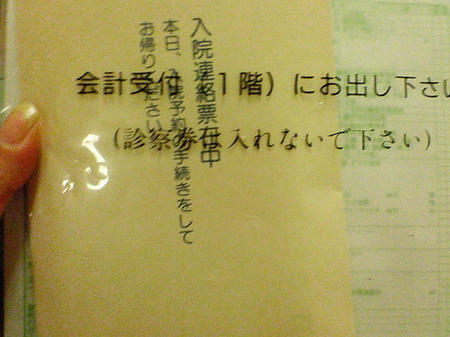 会計受付（1階）にお出し下さい
（診察券は入れないで下さい）
入院連絡票在中
本日、入院予約の手続きをして
お帰りください。